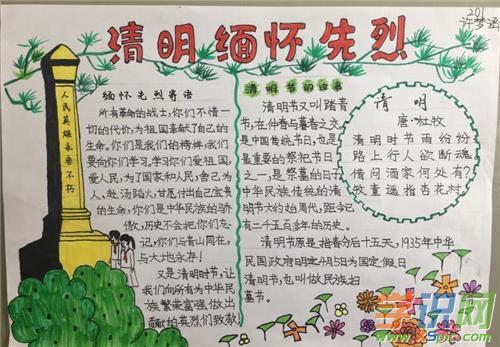 201
许梦涵
清明缅怀先烈
人民英雄永垂不朽
缅怀先烈寄语
所有革命的战士,你们不惜一
切的代价,为祖国奉献了自己的生
命。你们是我们的榜样,我们
要向你们学习。学习你们爱祖国,
爱人民,为了国家和人民,舍己为
人,赴汤蹈火,甘愿付出自己宝贵
的生命,你们是中华民族的骄
傲,历史不会把你们忘
记,你们与青山同在,
与大地永存!
又是清明时节,让
我们向所有为中华民
族繁荣富强,做出
贡献的英烈们致敬
清明节的由来
清明节又叫踏青
节,在仲春与暮春之交,
是中国传统节日,也是
最重要的祭祀节日
之一,是祭墓的日子
中华民族传统的清
明节大约始周代,距今已
有二千五百多年的历史。
清明节原是指春分后十五天,1935年中华
民国政府明定4月5日为国定假日
清明节,也叫做民族扫
墓节。
清明
唐·杜牧
清明时节雨纷纷
路上行人欲断魂
借问酒家何处有?
牧童遥指杏花村
学识网
www.xspic.com